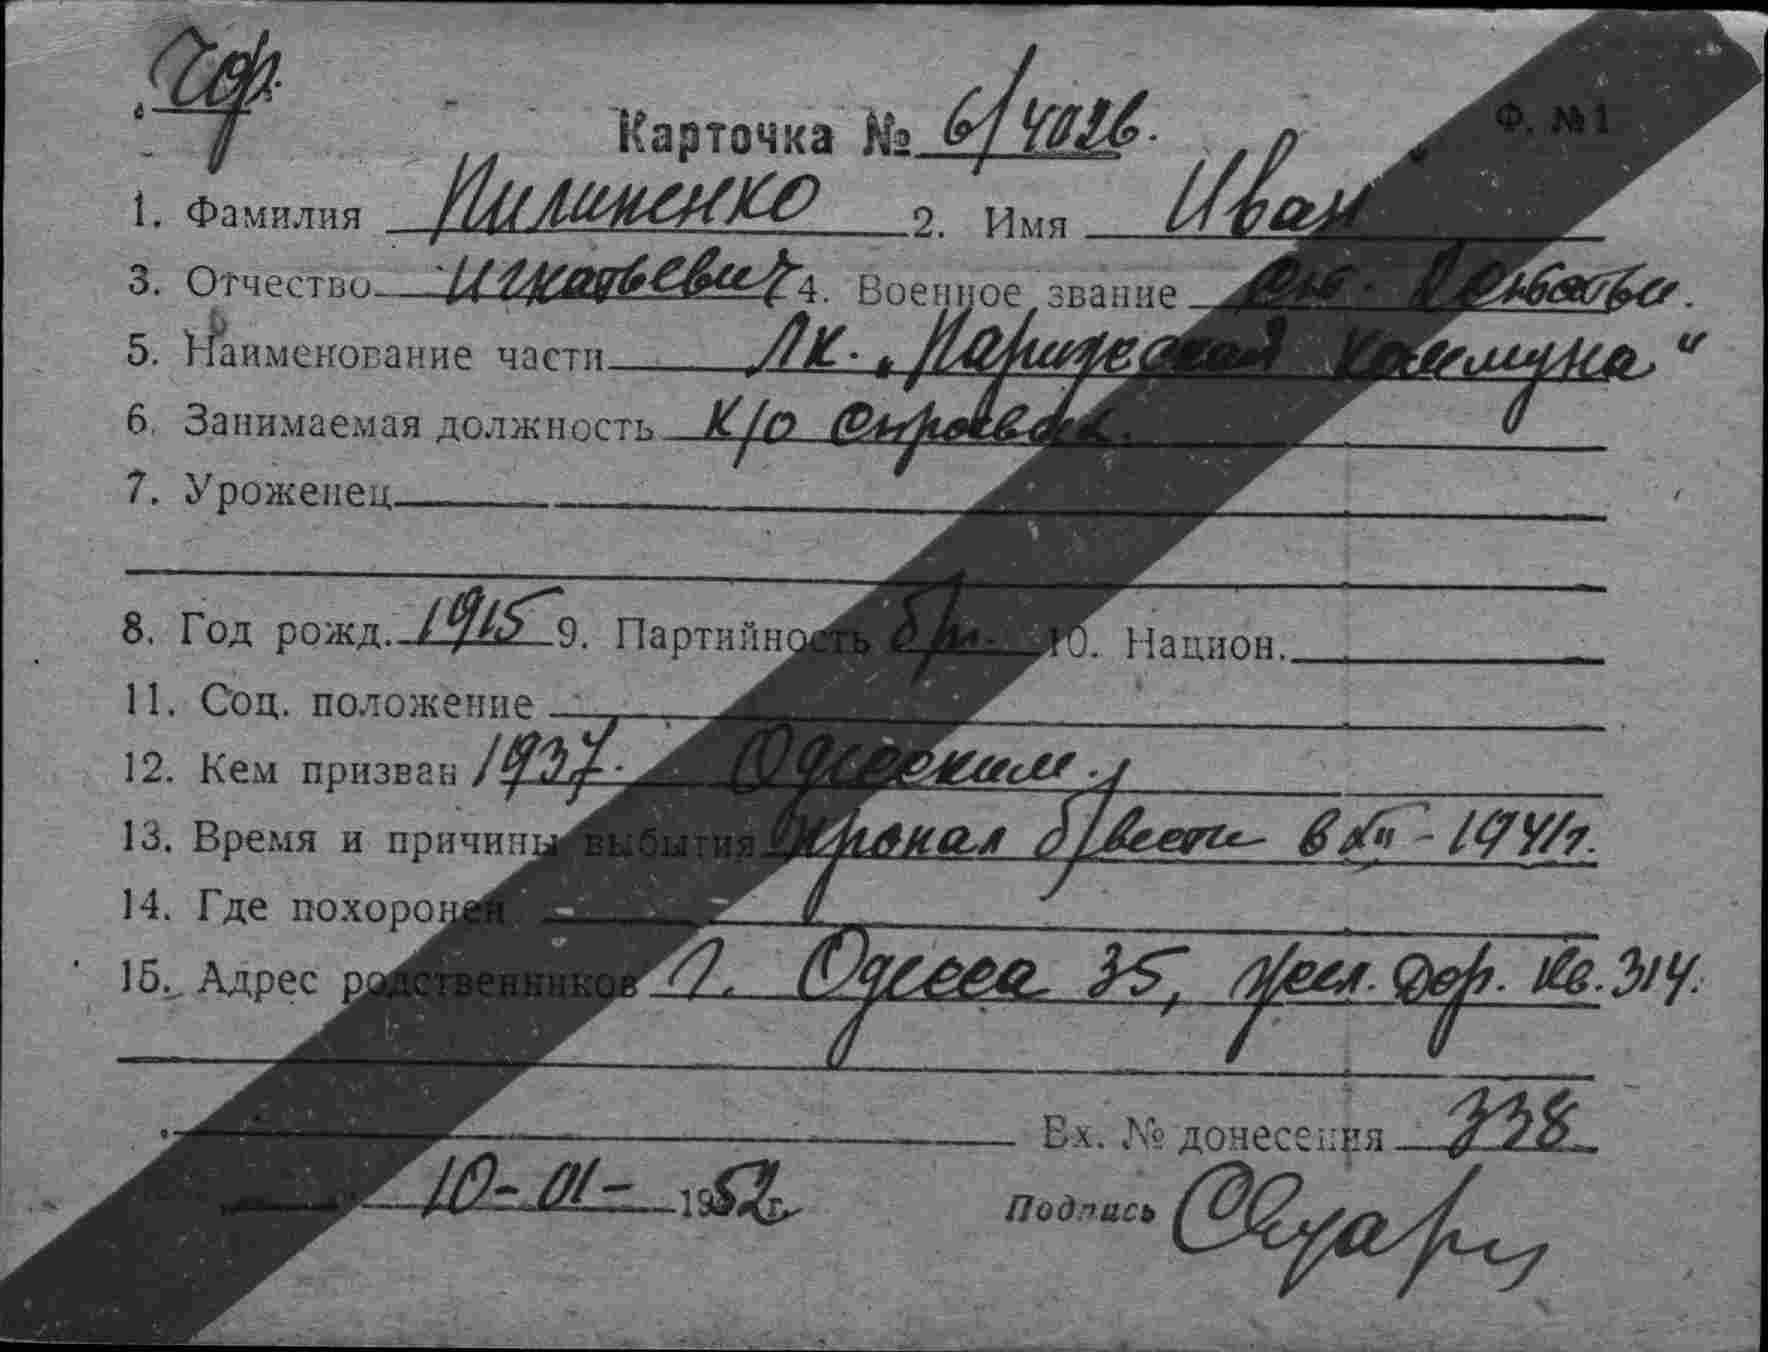 Чф.
Карточка № 6/4026.
Ф. №1
1. Фамилия Пилипенко 2. Имя Иван
3. Отчество Игнатьевич 4. Военное звание
5. Наименование части ЛК. „Парижская Коммуна"
6. Занимаемая должность К/О
7. Уроженец
8. Год рожд. 1915 9. Партийность б/п. 10. Национ.
11. Соц. положение
12. Кем призван 1937. Одесским
13. Время и причины выбытия пропал б/вести в XII - 1941г.
14. Где похоронен
15. Адрес родственников г. Одесса 35, Жел. Дор. кв. 314.
Вх. № донесения 338
10-01- 1952г.
Подпись